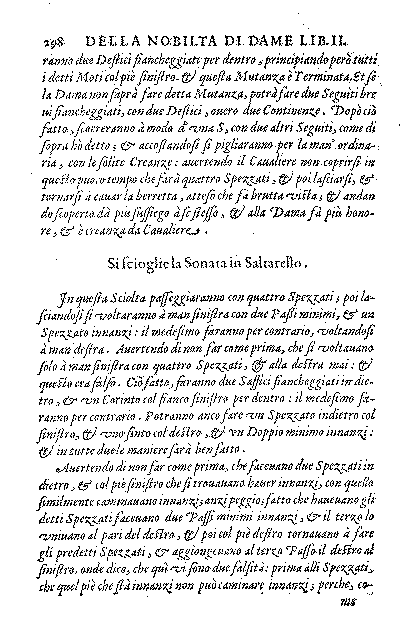 298 DELLA NOBILTA DI DAME LIB. II.
ranno due Destici fiancheggiati per dentro, principiando però tutti
i detti Moti col piè sinistro. & questa Mutanza è Terminata. Et se
la Dama non saprà fare detta Mutanza, potrà fare due Seguiti bre
ui fiancheggiati, con due Destici, ouero due Continenze. Dopò ciò
fatto, scorreranno à modo d'vna S, con due altri Seguiti, come di
sopra hò detto; & accostandosi si pigliaranno per la man' ordina-
ria, con le solite Creanze: auertendo il Caualiere non coprirsi in
questo puo.o tempo che farà quattro Spezzati, & poi lasciarsi, &
tornarsi à cauar la berretta, atteso che fà brutta vista, & andan
do scoperto dà più sussiego à se stesso, & alla Dama fà più hono-
re, & è creanza da Caualiere.
Si scioglie la Sonata in Saltarello.
In questa Sciolta passeggiaranno con quattro Spezzati; poi la-
sciandosi si voltaranno à man sinistra con due Passi minimi, & un
Spezzato innanzi: il medesimo faranno per contrario, voltandosi
à man destra. Auertendo di non far come prima, che si voltauano
solo à man sinistra con quattro Spezzati, & alla destra mai: &
questo era falso. Ciò fatto, faranno due Saffici fiancheggiati in die-
tro, & vn Corinto col fianco sinistro per dentro: il medesimo fa-
ranno per contrario. Potranno anco fare vn Spezzato indietro col
sinistro, & vno finto col destro, & vn Doppio minimo innanzi:
& in tutte due le maniere sarà ben fatto.
Auertendo di non far come prima, che faceuano due Spezzati in
dietro, & col piè sinistro che si trouauano hauer innanzi, con quello
similmente caminauano innanzi; anzi peggio: fatto che haueuano gli
detti Spezzati faceuano due Passi minimi innanzi, & il terzo lo
vniuano al pari del destro, & poi col piè destro tornauano à fare
gli predetti Spezzati, & aggiongeuano al terzo Passo il destro al
sinistro, onde dico, che quì vi sono due falsità: prima alli Spezzati,
che quel piè che stà innanzi non può caminare innanzi; perche, co-
me